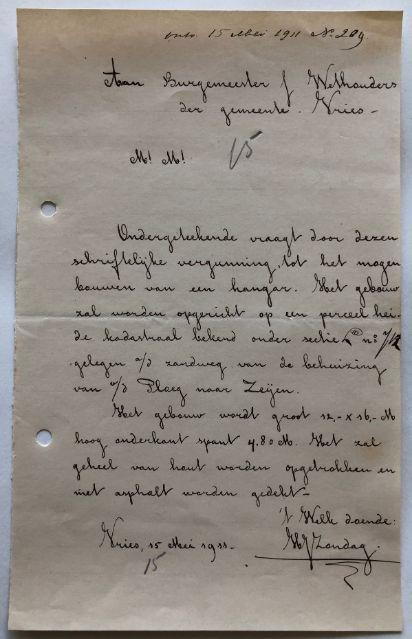 ontv. 15 Mei 1911 No. 209.
Aan Burgemeester & Wethouders
der gemeente Vries -
M! M!
15
Ondergeteekende vraagt door dezen
schriftelijke vergunning, tot het mogen
bouwen van een hangar. Het gebouw
zal worden opgericht op een perceel hei-
de kadastraal bekend onder sectie no
gelegen a/d zandweg van de behuizing
van v/d Ploeg naar Zeijen.
Het gebouw wordt groot 12,- x 16,- M
hoog onderkant spant 4.80 M. Het zal
geheel van hout worden opgetrokken en
met asphalt worden gedekt -
't Welk doende:
Vries, 15 Mei 1911. Zondag.
15